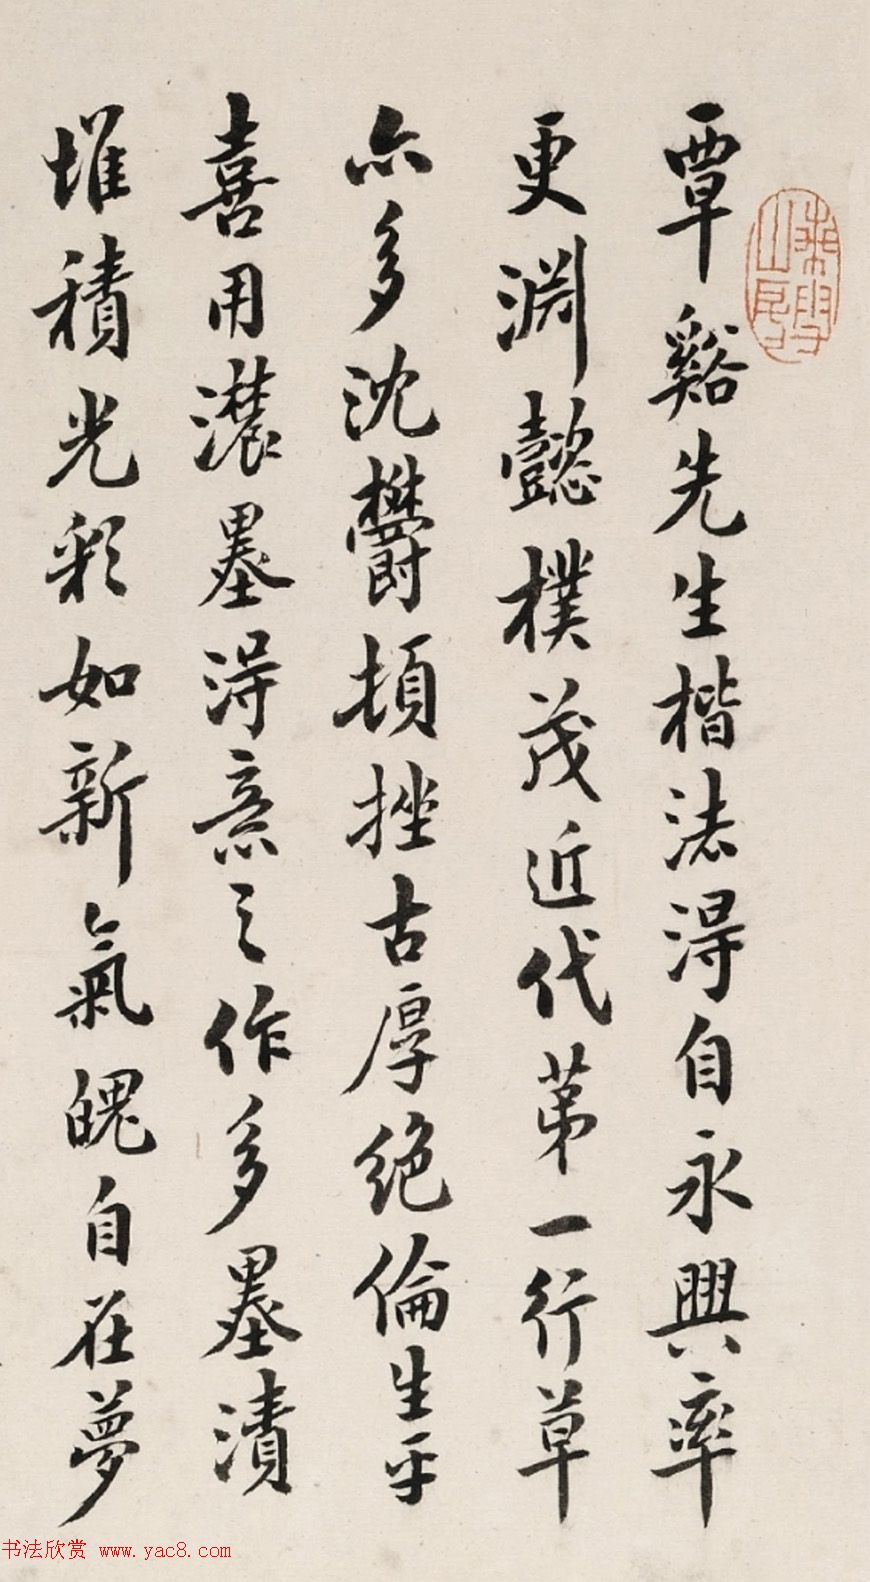 覃谿先生楷法得自永興率
更淵懿樸茂近代第一行草
亦多沈鬱頓挫古厚絕倫生平
喜用濃墨得意之作多墨漬
堆積光彩如新氣魄自在夢
书法欣赏 www.yac8.com